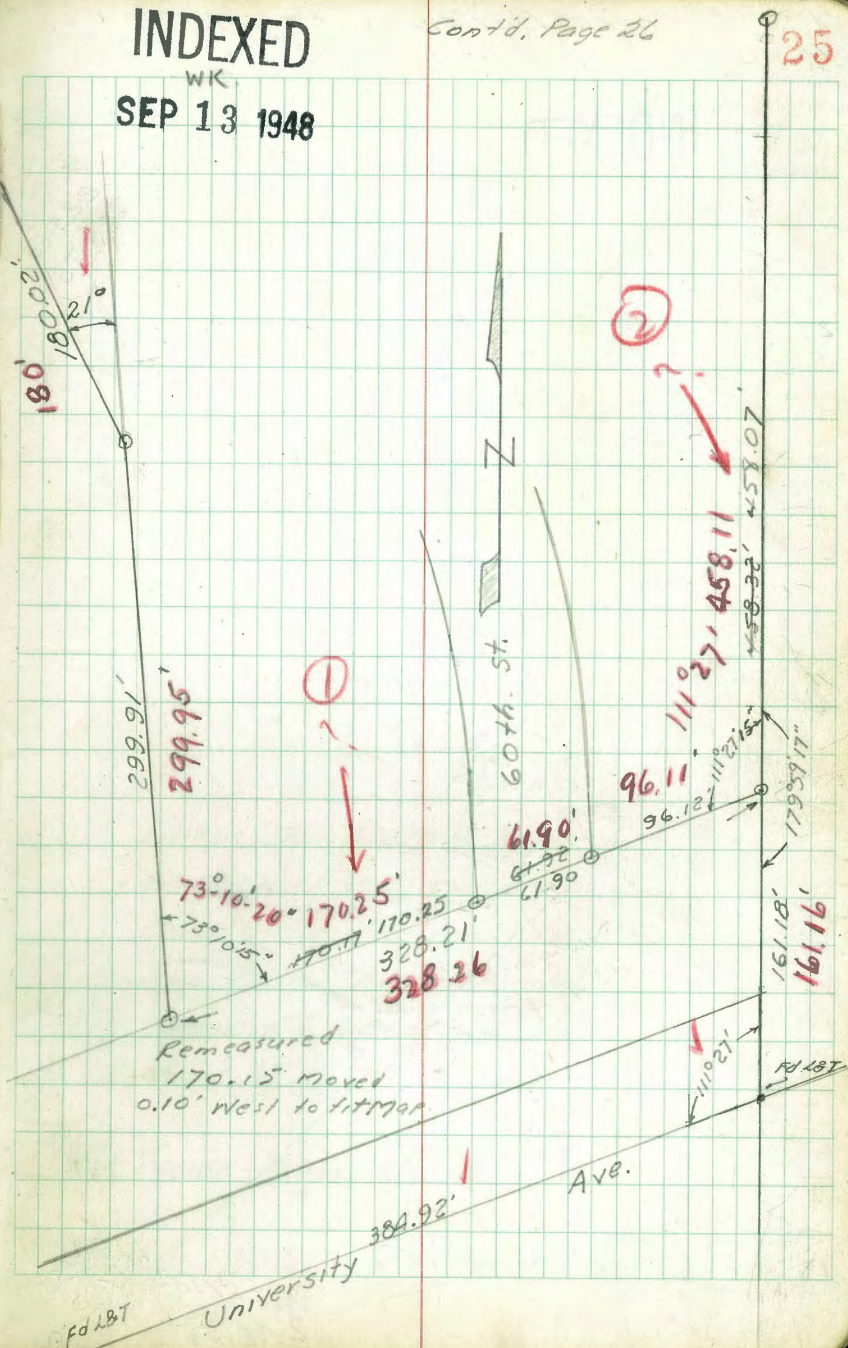 INDEXED
WK.
SEP 13 1948
Cont'd, Page 26
25
21°
180.02'
180'
2
?
N
458.07'
458.32'
458.11
111° 27'
60th. St.
1
?
299.91'
299.95'
111° 27' 15"
179°59'17"
96.11'
96.12
61.90'
61.92
61.90
73°-10'-20" 170.25'
73°10'15"
170.17' 170.25
328.21'
328.26
161.18'
161.16'
Remeasured
170.15 moved
0.10' West to fit Map
111°27'
Fd L&T
Ave.
384.92'
University
Fd L&T